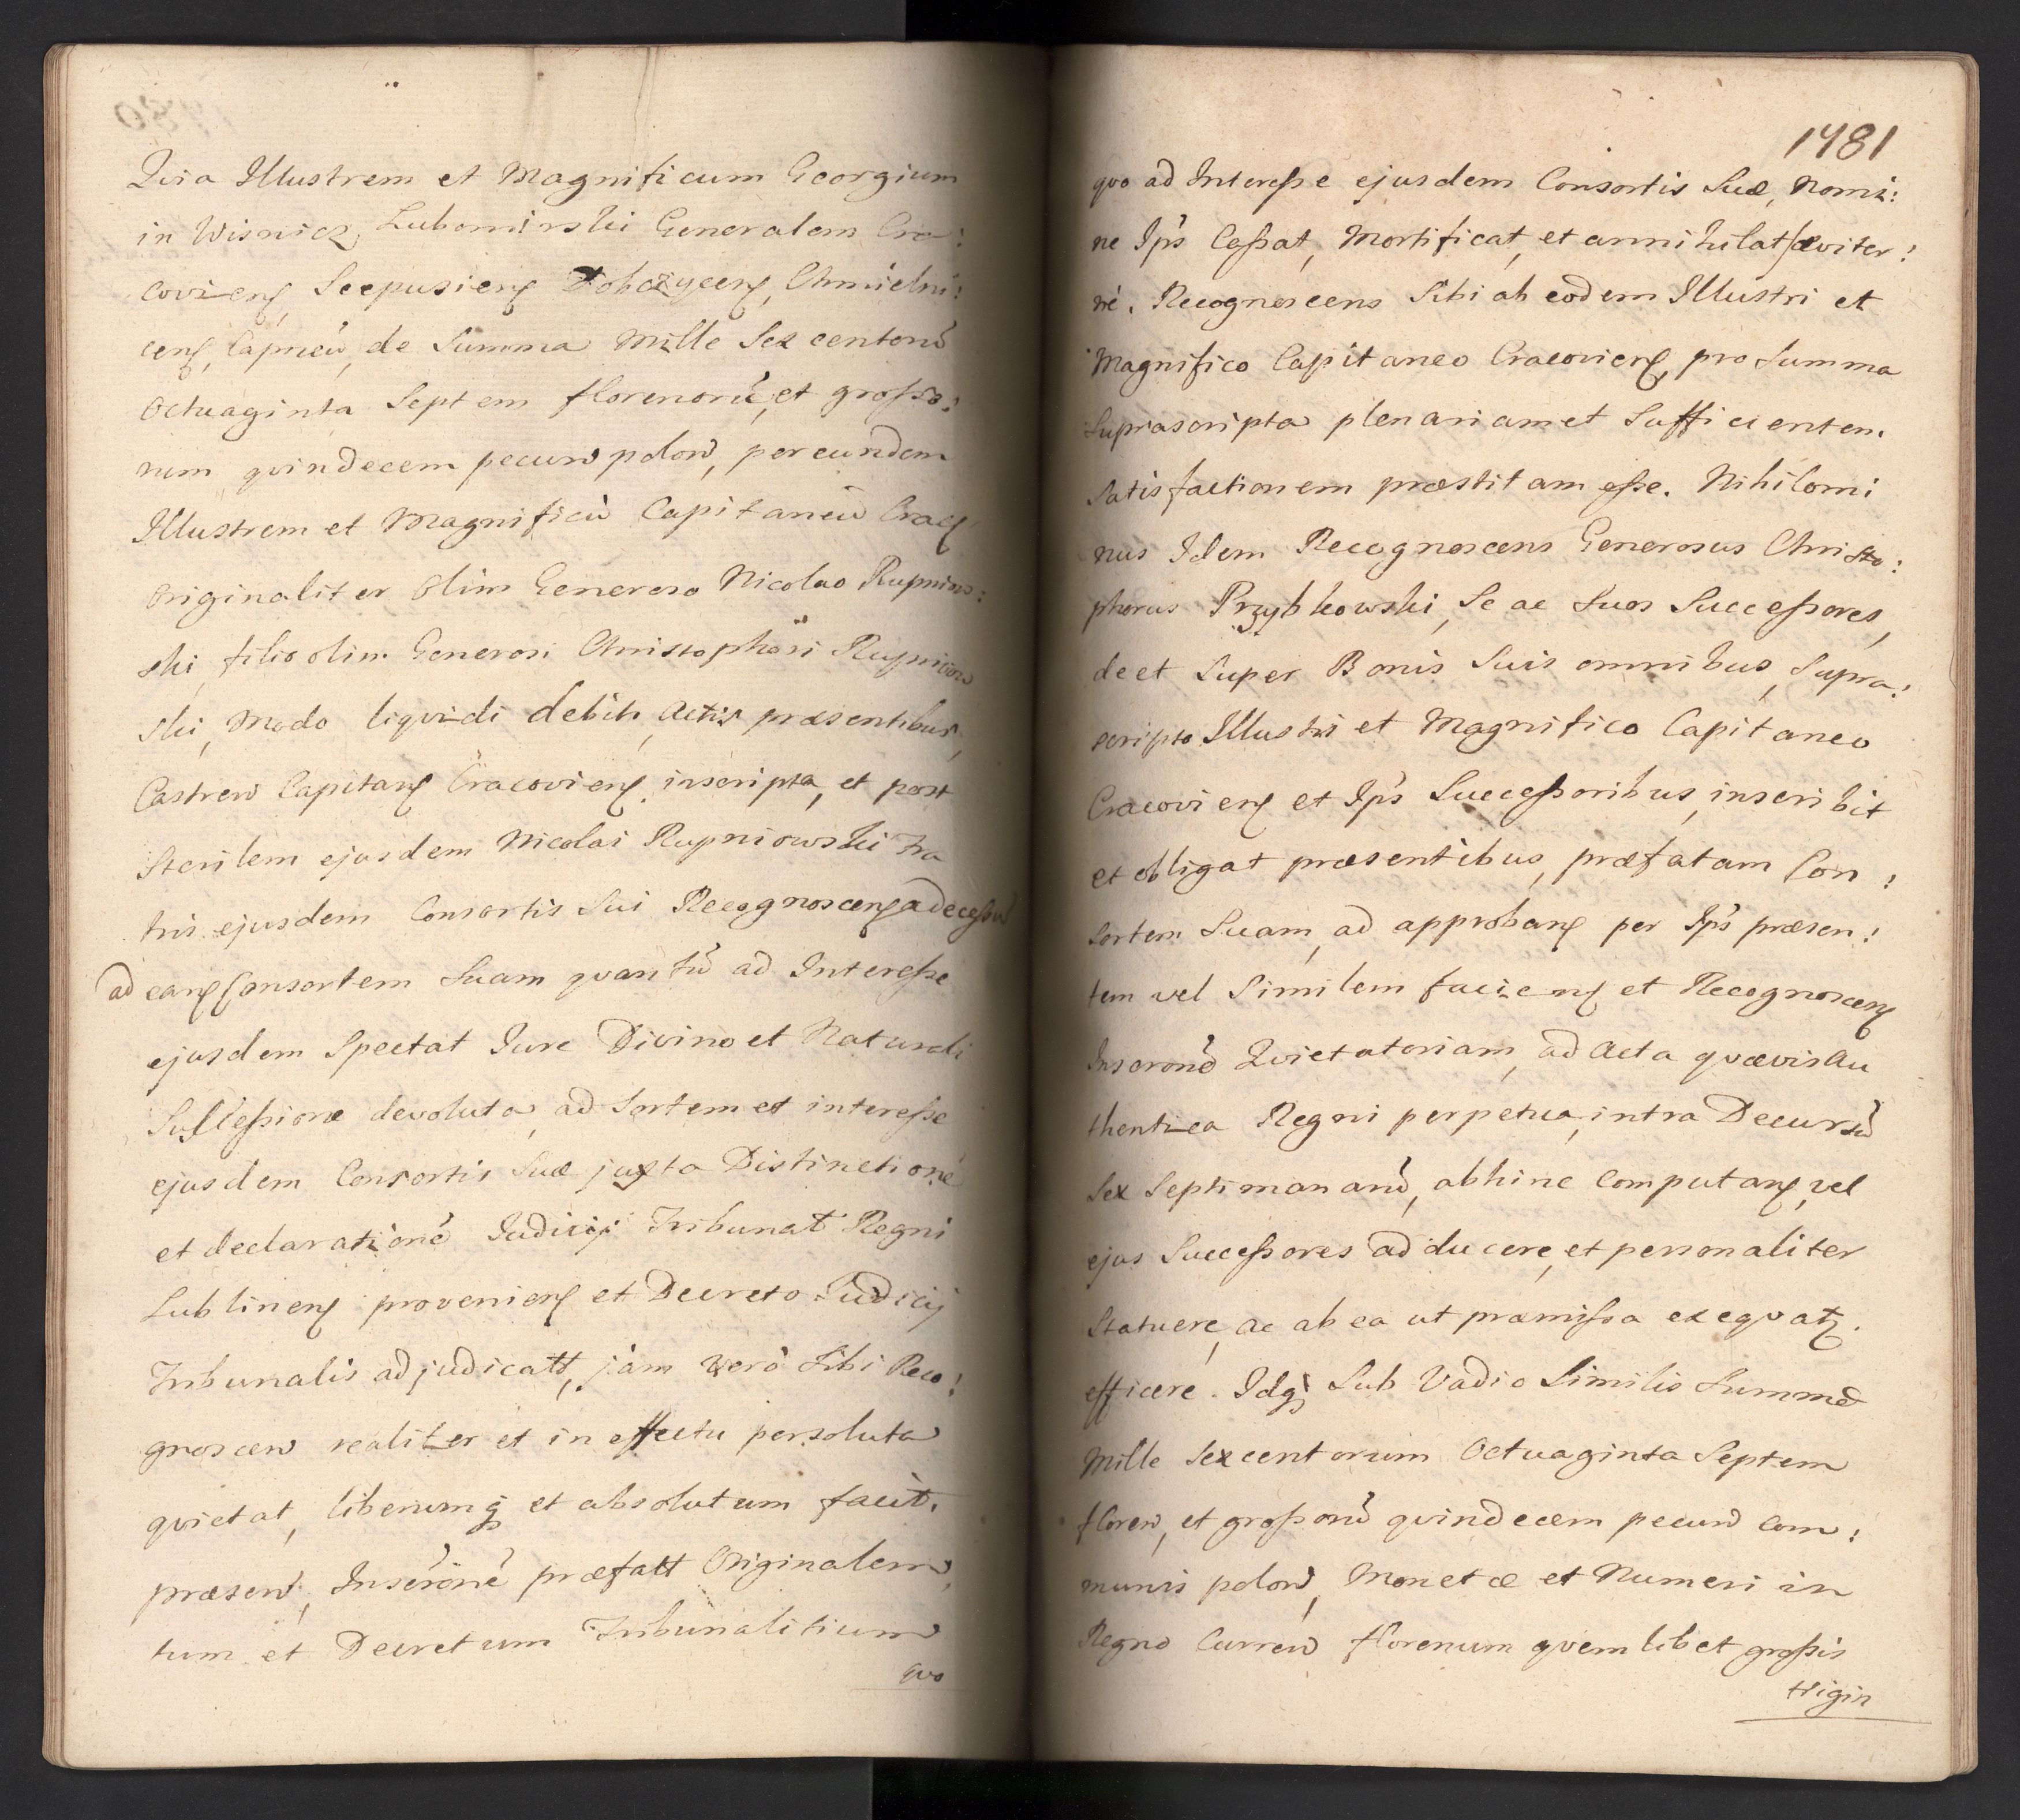 Qvia Illustrem et Magnificum Georgium
in Wisnicz, Lubomirski Generalem Cra:
covienß, Scepusienß Dobczycenß, Chmielni:
cenß, Capneū, de Summa Mille Sex centorū
Octuaginta Septem florenorū, et grosso:
rum qvindecem pecuniæ polon, per eundem
Illustrem et Magnificū Capitaneū Cracß
Originaliter Olim Generoso Nicolao Rupniow:
ski, filio olim Generosi Christophori Rupniow
ski, Modo liqvidi debiti, Actis præsentibus,
Castren Capitanß Cracovienß inscripta, et post
Sterilem ejusdem Nicolai Rupniowski Fra
tris ejusdem Consortis Sui Recognoscenß adecessū
ad eanß Consortem Suam qvantū ad Interesse
ejusdem Spectat Jure Divino et Naturali
Successione devoluta, ad Sortem et interesse
ejusdem Consortis Suæ juxta Distinctionē
et declarationē Judicij Tribunal Regni
Lublinenß provenienß et Decreto Judicij
Tribunalis adjudicatt, jam verò Sibi Reco:
gnoscen realiter et in effectu persoluta
qvietat, liberumq et absolutum facit.
præsen, Inscrōnē præfatt Originalem,
tum et Decretum Tribunalitium
qvo
1481
qvo ad Interesse ejusdem Consortis Suæ, Nomi:
ne Ips Cessat, Mortificat, et annihilat sæviter:
nè. Recognoscens Sibi ab eodem Illustri et
Magnifico Capitaneo Cracovienß, pro Summa
Suprascripta plenariam et Sufficienten.
Satisfactionem præstitam esse. Nihilomi
nus Idem Recognoscens Generosus Christo:
phorus Przybkowski, Se ac Suos Successores,
de et Super Bonis Suis omnibus, Supra:
scripto Illustri et Magnifico Capitaneo
Cracovienß et Ips Successoribus, inscribit
et obligat præsentibus, præfatam Con:
sortem Suam, ad approbanß per Ips præsen:
tem vel Similem facienß et Recognoscenß
Inscronē Qvietatoriam, ad Acta qvævis Au
thentica Regni perpetua, intra Decursū
Sex Septimanarū, abhinc Computanß, vel
ejus Successores adducere, et personaliter
Statuere, ac ab ea ut præmissa exeqvatz.
efficere. Idq Sub Vadio Similis Summæ
Mille Sexcentorum Octuaginta Septem
floren, et grossorū qvindecem pecun com:
munis polon, Monetæ et Numeri in
Regno Curren florenum qvemlibet grossis
trigin